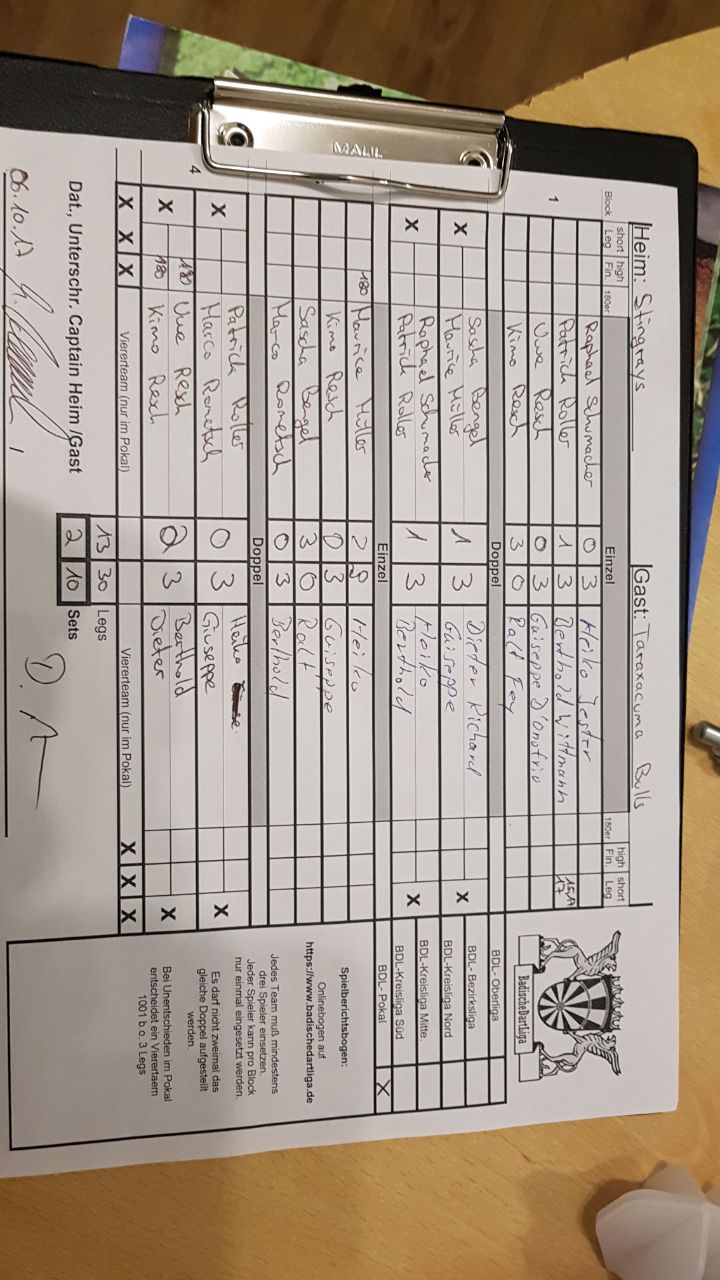 MAUL
Heim: Stingrays Gast: Taraxacuma Bulls
Block short Leg high Fin. 180er Einzel 180er high Fin. short Leg
1 Raphael Schumacher 0 3 Heiko Jester
Patrick Roller 1 3 Berthold Wittmann 15, 17 17
Uwe Resch 0 3 Guiseppe D'Onofrio
Kimo Resch 3 0 Ralf Fey
Doppel
X Sascha Bengel 1 3 Dieter Richard X
Maurice Müller Guiseppe
X Raphael Schumacher 1 3 Heiko X
Patrick Roller Berthold
Einzel
180 Maurice Müller 2 3 Heiko
Kimo Resch 0 3 Guiseppe
Sascha Bengel 3 0 Ralf
Marco Rometsch 0 3 Berthold
Doppel
4 X Patrick Roller 0 3 Heiko X
Marco Rometsch Giuseppe
X 180 Uwe Resch 2 3 Berthold X
180 Kimo Resch Dieter
X X X Viererteam (nur im Pokal) Viererteam (nur im Pokal) X X X
13 30 Legs
2 10 Sets
Dat., Unterschr. Captain Heim /Gast
06.10.17
BadischeDartLiga
BDL- Oberliga
BDL- Bezirksliga
BDL-Kreisliga Nord
BDL-Kreisliga Mitte.
BDL-Kreisliga Süd
BDL- Pokal X
Spielberichtsbogen:
Onlinebogen auf
https://www.badischedartliga.de
Jedes Team muß mindestens
drei Spieler einsetzen.
Jeder Spieler kann pro Block
nur einmal eingesetzt werden.
Es darf nicht zweimal das
gleiche Doppel aufgestellt
werden.
Bei Unentschieden im Pokal
entscheidet ein Viererteam
1001 b.o. 3 Legs